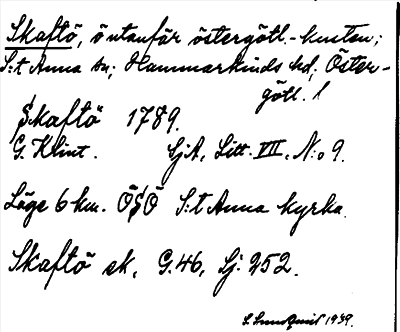 Skaftö, ö utanför östergötl.-kusten;
S:t Anna sn; Hammarkinds hd; Öster-
götl. l
Skaftö 1789.
G. Klint. SjA, Litt. VII, N:o 9.
Läge 6 km. ÖSÖ S:t Anna kyrka.
Skaftö ek. G.46, Sj. 252.
S. Sundquist 1939.